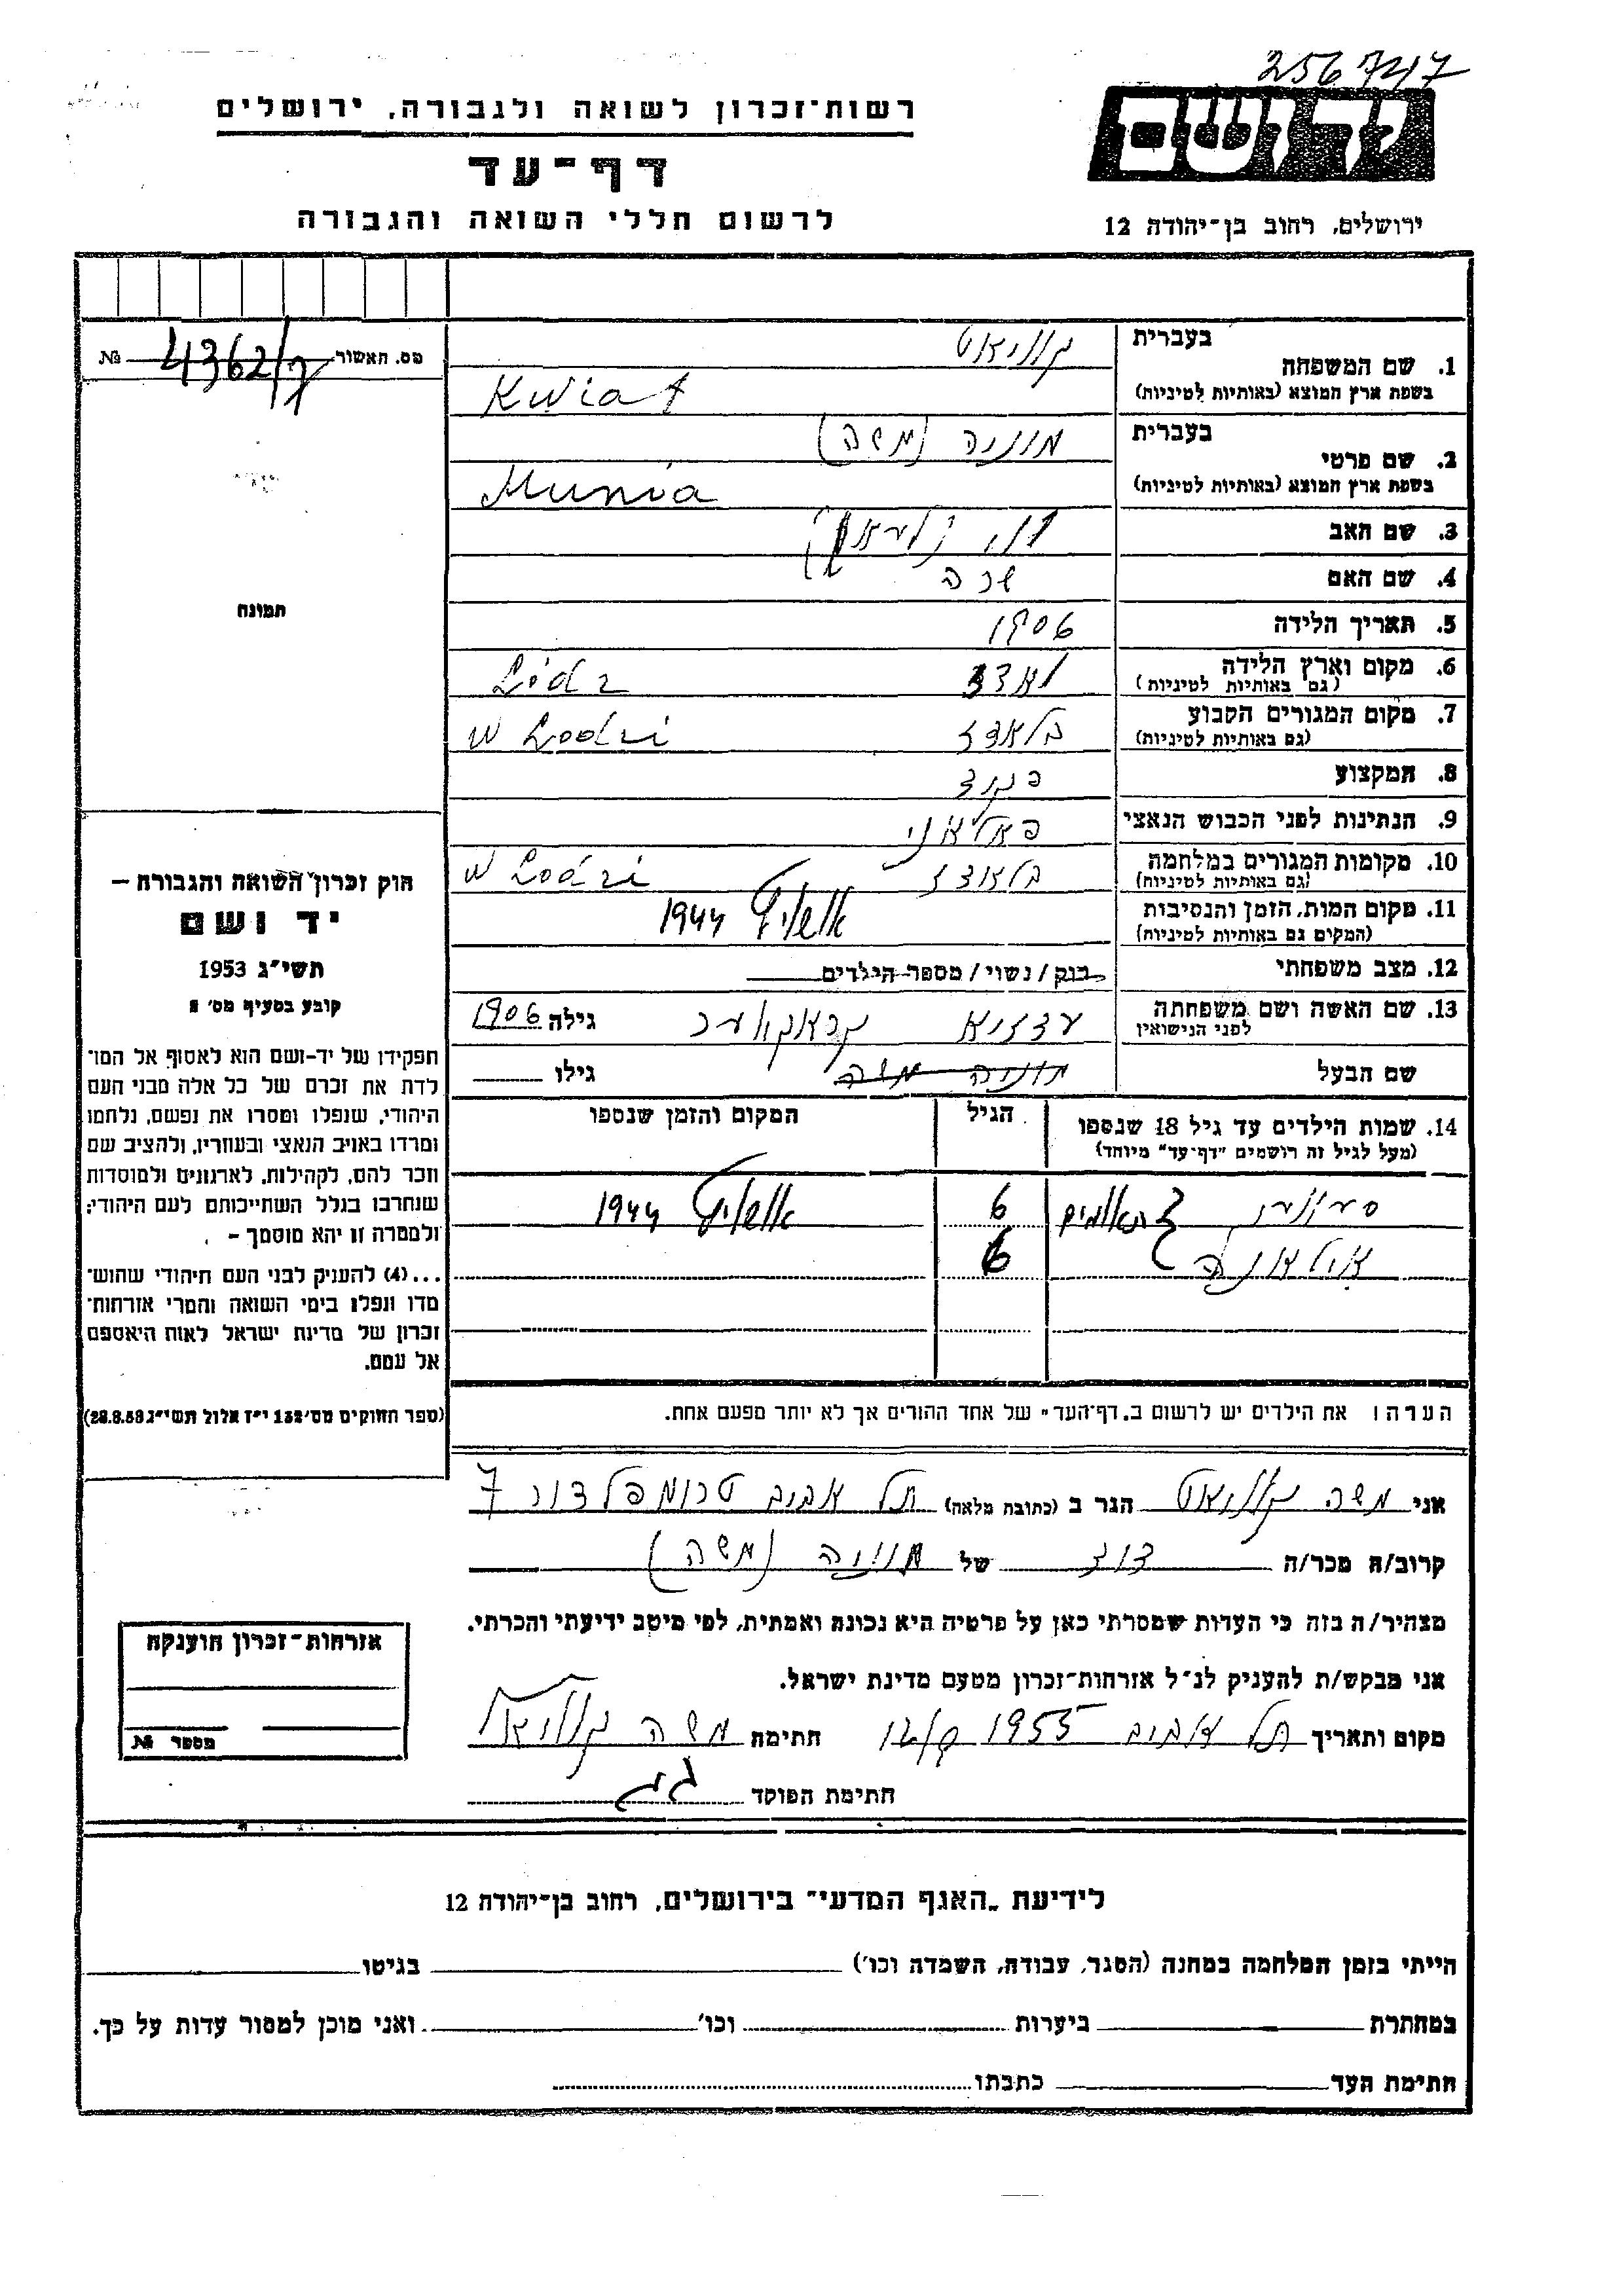 256747
יד ושם
רשות־זכרון לשואה ולגבורה, ירושלים
דף־עד
לרשום חללי השואה והגבורה
ירושלים, רחוב בן־יהודה 12
מס. האשור № 4362/
1. שם המשפחה
בעברית קוויאט
בשפת ארץ המוצא (באותיות לטיניות) Kwiat
2. שם פרטי
בעברית מוניה (משה)
בשפת ארץ המוצא (באותיות לטיניות) Munia
3. שם האב
4. שם האם שרה
5. תאריך הלידה 1906
6. מקום וארץ הלידה לאדז Lódz
(גם באותיות לטיניות)
7. מקום המגורים הקבוע בלאדז w Lodzi
(גם באותיות לטיניות)
8. המקצוע
9. הנתינות לפני הכבוש הנאצי
10. מקומות המגורים במלחמה בלאדז w Lodzi
(גם באותיות לטיניות)
11. מקום המות, הזמן והנסיבות אושוויץ 1944
(המקום גם באותיות לטיניות)
12. מצב משפחתי רוק / נשוי / מספר הילדים
13. שם האשה ושם משפחתה גילה 1906
לפני הנישואין
שם הבעל מוניה משה גילו
14. שמות הילדים עד גיל 18 שנספו הגיל המקום והזמן שנספו
(מעל לגיל זה רושמים "דף־עד" מיוחד)
תאומים 6 אושוויץ 1944
6
הערה: את הילדים יש לרשום ב„דף־העד" של אחד ההורים אך לא יותר מפעם אחת.
תמונה
חוק זכרון השואה והגבורה —
יד ושם
תשי"ג 1953
קובע בסעיף מס' 2
תפקידו של יד־ושם הוא לאסוף אל המו־
לדת את זכרם של כל אלה מבני העם
היהודי, שנפלו ומסרו את נפשם, נלחמו
ומרדו באויב הנאצי ובעוזריו, ולהציב שם
וזכר להם, לקהילות, לארגונים ולמוסדות
שנחרבו בגלל השתייכותם לעם היהודי;
ולמטרה זו יהא מוסמך —
...(4) להעניק לבני העם היהודי שהוש־
מדו ונפלו בימי השואה והמרי אזרחות־
זכרון של מדינת ישראל לאות היאספם
אל עמם.
(ספר החוקים מס' 132 י"ז אלול תשי"ג 28.8.53)
אני משה קוויאט הגר ב (כתובת מלאה) תל אביב טרומפלדור 7
קרוב/ה מכר/ה דוד של מוניה (משה)
מצהיר/ה בזה כי העדות שמסרתי כאן על פרטיה היא נכונה ואמתית, לפי מיטב ידיעתי והכרתי.
אני מבקש/ת להעניק לנ"ל אזרחות־זכרון מטעם מדינת ישראל.
מקום ותאריך תל אביב 1955 חתימה משה קוויאט
חתימת הפוקד
אזרחות־זכרון הוענקה
מספר №
לידיעת „האגף המדעי" בירושלים, רחוב בן־יהודה 12
הייתי בזמן המלחמה במחנה (הסגר, עבודה, השמדה וכו') בגיטו
במחתרת ביערות וכו' ואני מוכן למסור עדות על כך.
חתימת העד כתבתו